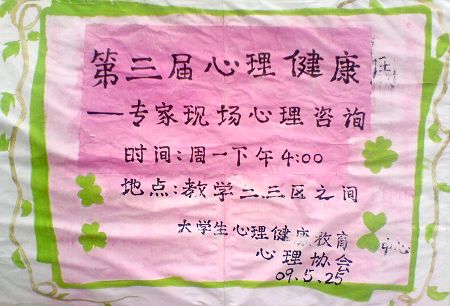 第三届心理健康
—专家现场心理咨询
时间:周一下午4:00
地点:教学二三区之间
大学生心理健康教育中心
心理协会
09.5.25